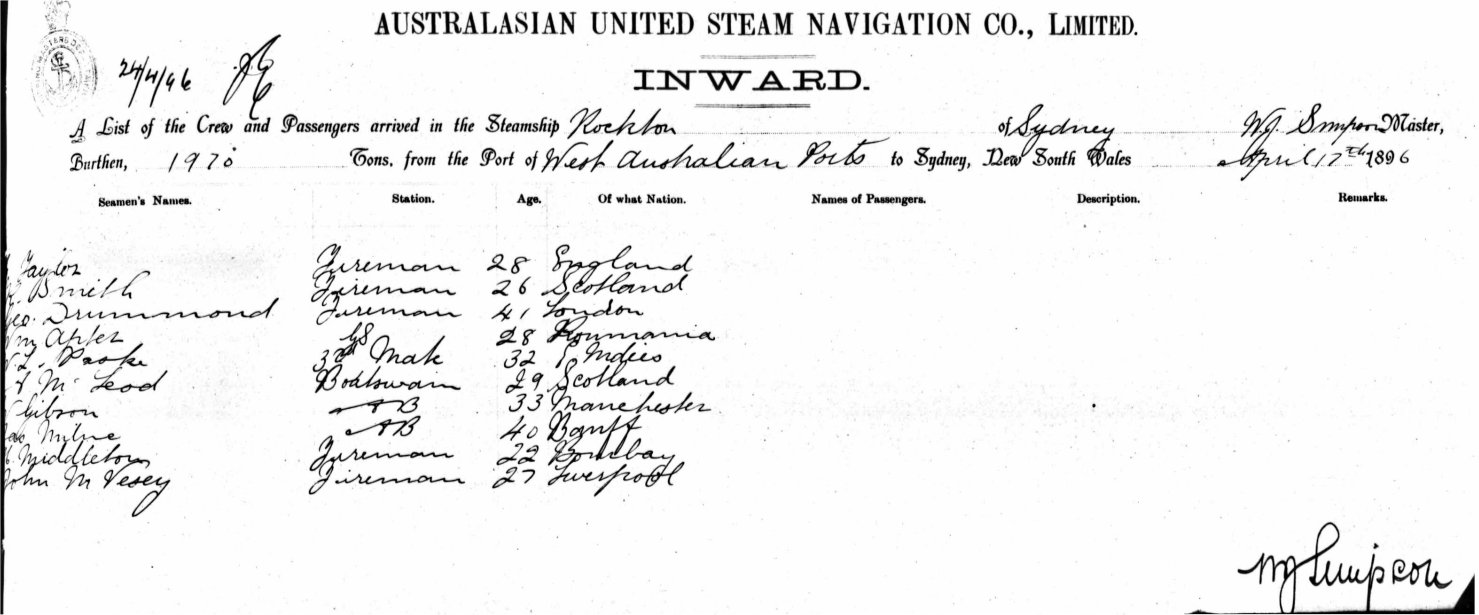 AUSTRALASIAN UNITED STEAM NAVIGATION CO., LIMITED.
24/4/96
INWARD.
A List of the Crew and Passengers arrived in the Steamship Rockton of Sydney WJ Simpson Master,
Burthen, 1970 Tons. from the Port of West Australian Ports to Sydney, New South Wales April 17th 1896
Seamen's Names. Station. Age. Of what Nation. Names of Passengers. Description. Remarks.
Taylor Fireman 28 England
Smith Fireman 26 Scotland
Geo. Drummond Fireman 41 London
Wm 28 Roumania
3rd Mate 32 E Indies
McLeod Boatswain 29 Scotland
Gibson AB 33 Manchester
Jas Milne AB 40 Banff
Middleton Fireman 22 Bombay
John M Vesey Fireman 27 Liverpool
WJ Simpson